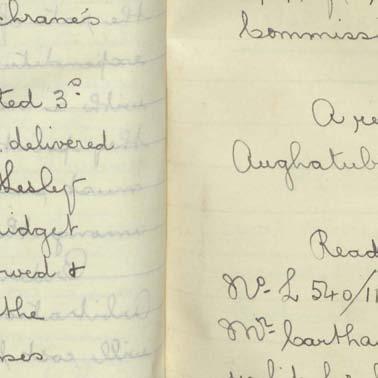 chrane's
ted 3º
delivered
Lesley
idget
rwed &
the
ses
Commiss
A re
Aughatub
Read
Nº L 540/11
Mr Cartha